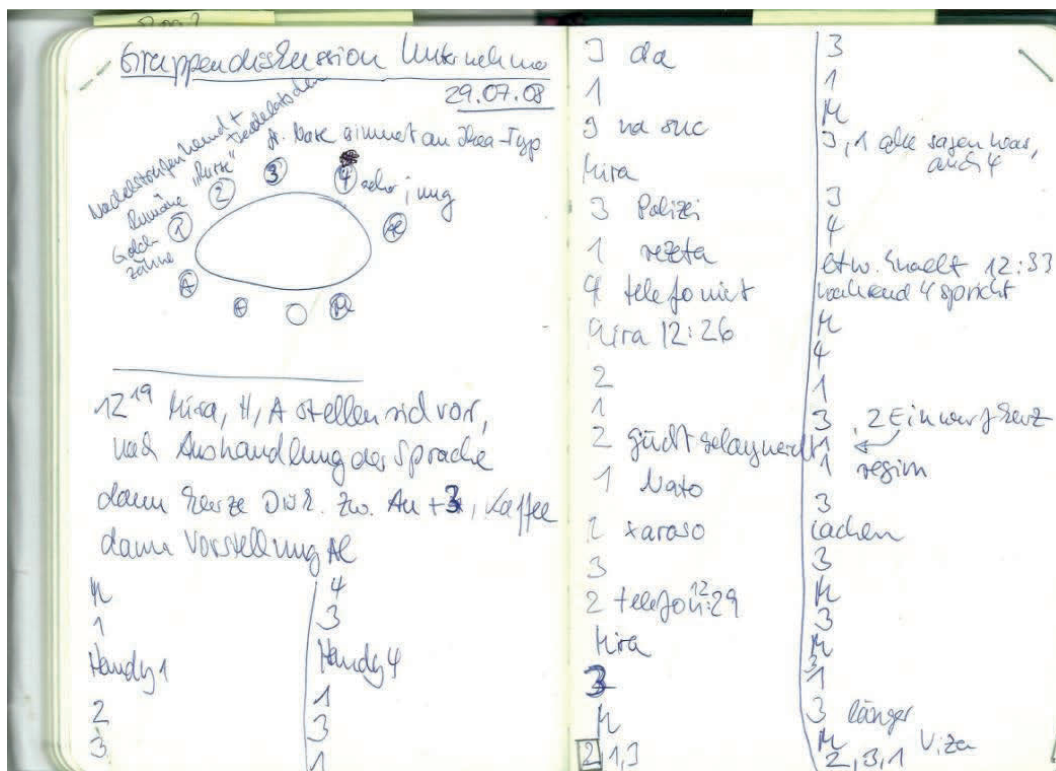 Gruppendiskussion Unternehmer
29.07.08
A. Nase nimmt an Ikea-Typ
"Russe"
Rumäne
Gold-
zähne
1
2
3
4 sehr jung
Al
M
A
12 19 Mira, H, A stellen sich vor,
nach Aushandlung der Sprache
dann kurze Disk. zw. An + 3, Kaffee
dann Vorstellung Al
M
1
Handy 1
2
3
4
3
Handy 4
1
3
1
3 da
1
3 na suc
Mira
3 Polizei
1 rezeta
4 telefoniert
Mira 12:26
2
1
2 guckt gelangweilt
1 Nato
2 xaraso
3
2 telefon 12:29
Mira
3
M
2,1,3
3
1
M
3, 1 alle sagen was,
auch 4
3
4
etw. knallt 12:33
während 4 spricht
M
4
1
3, 2 Einwurf kurz
1
1 regim
3
lachen
3
M
3
M
3
1
3 länger
M
2,3,1 Viza